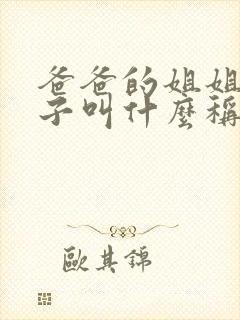 爸爸的姐姐
子叫什麼稱
歐其錦